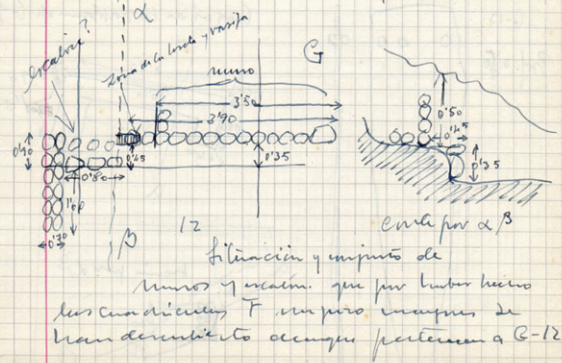 α
escalón?
zona de la tosta y vasija
G
muro
3'50
3'90
0'40
0'45
0'35
0'80
1'00
0'70
β
12
0'50
0'45
0'35
corte por α β
Situación y conjunto de
muros y escalón. que por haber hecho
las cuadrículas F un poco mayores se
han descubierto aunque pertenecen a G-12